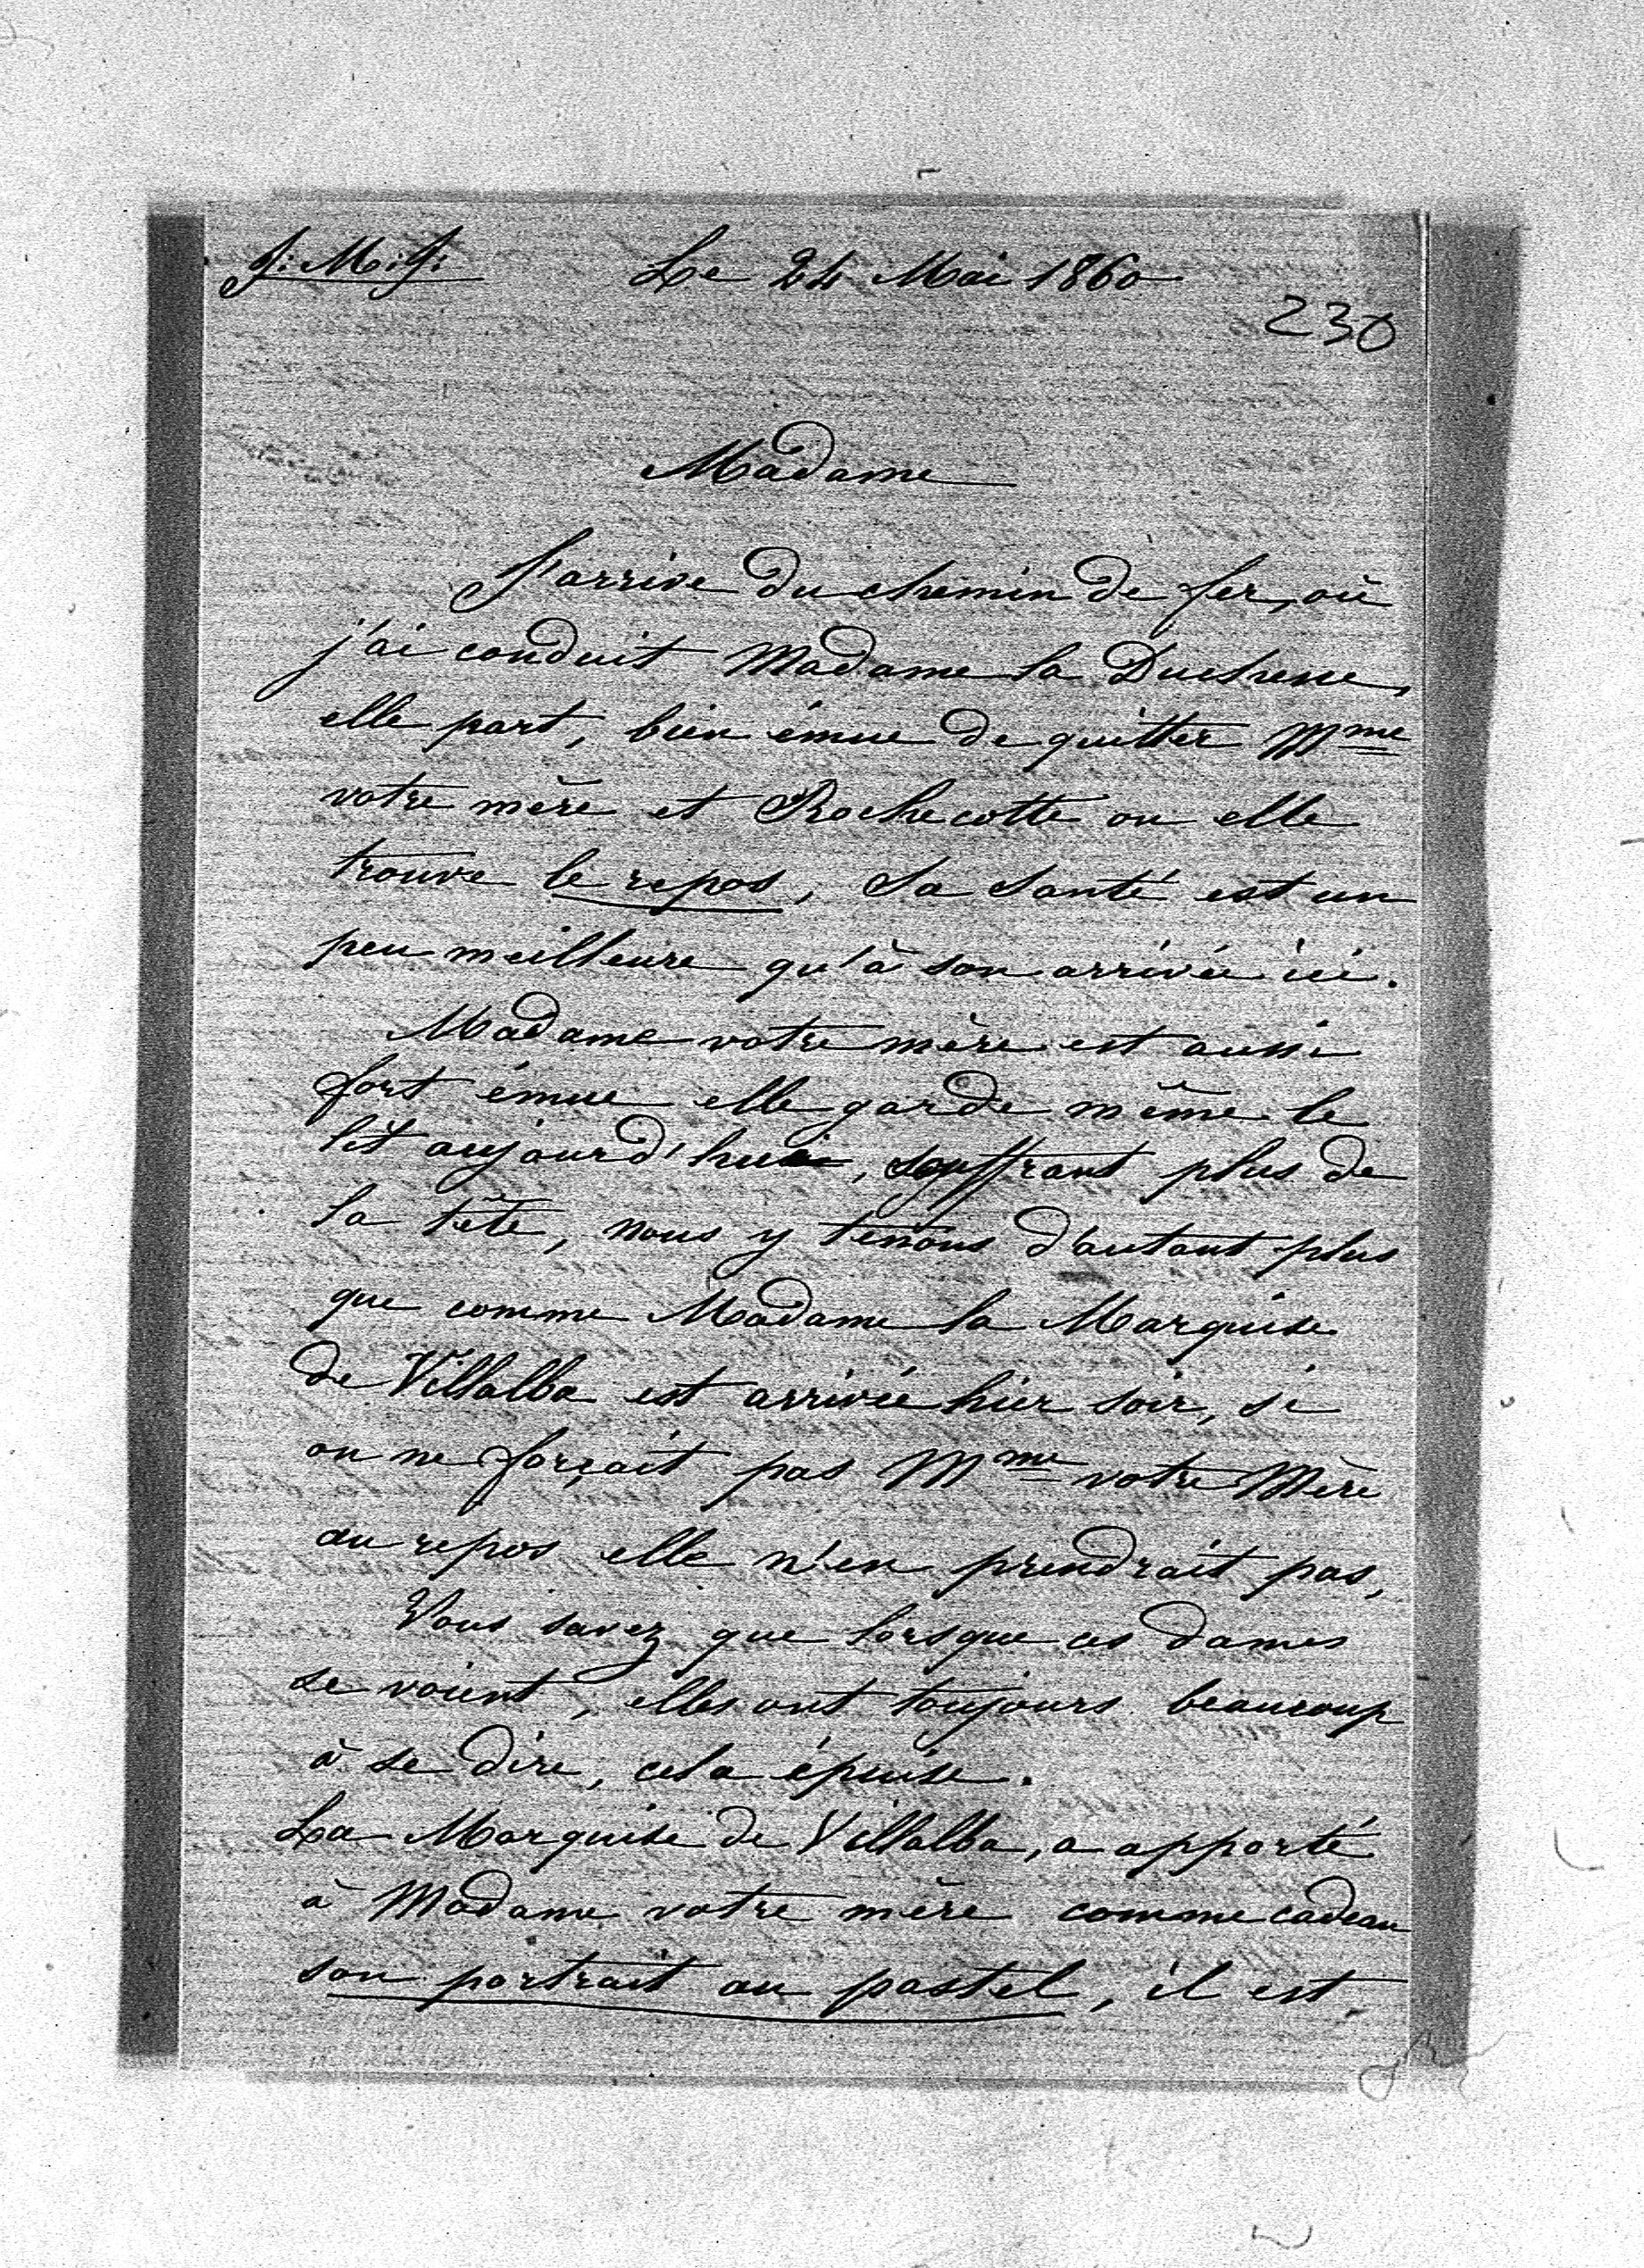 J: M: J: Le 24 Mai 1860
230
Madame
J'arrive du chemin de fer, où
j'ai conduit Madame la Duchesse,
elle part, bien émue de quitter Mme
votre mère et Rochecotte ou elle
trouve le repos, sa santé est un
peu meilleure qu'à son arrivée ici.
Madame votre mère est aussi
fort émue elle garde même le
lit aujourd'hui, souffrant plus de
la tête, nous y tenons d'autant plus
que comme Madame la Marquise
de Villalba est arrivée hier soir, si
on ne forçait pas Mme votre Mère
au repos elle n'en prendrait pas,
Vous savez que lorsque ces dames
se voient, elles ont toujours beaucoup
à se dire, cela épuise.
La Marquise de Villalba, a apporté
à Madame votre mère comme cadeau
son portrait au pastel, il est